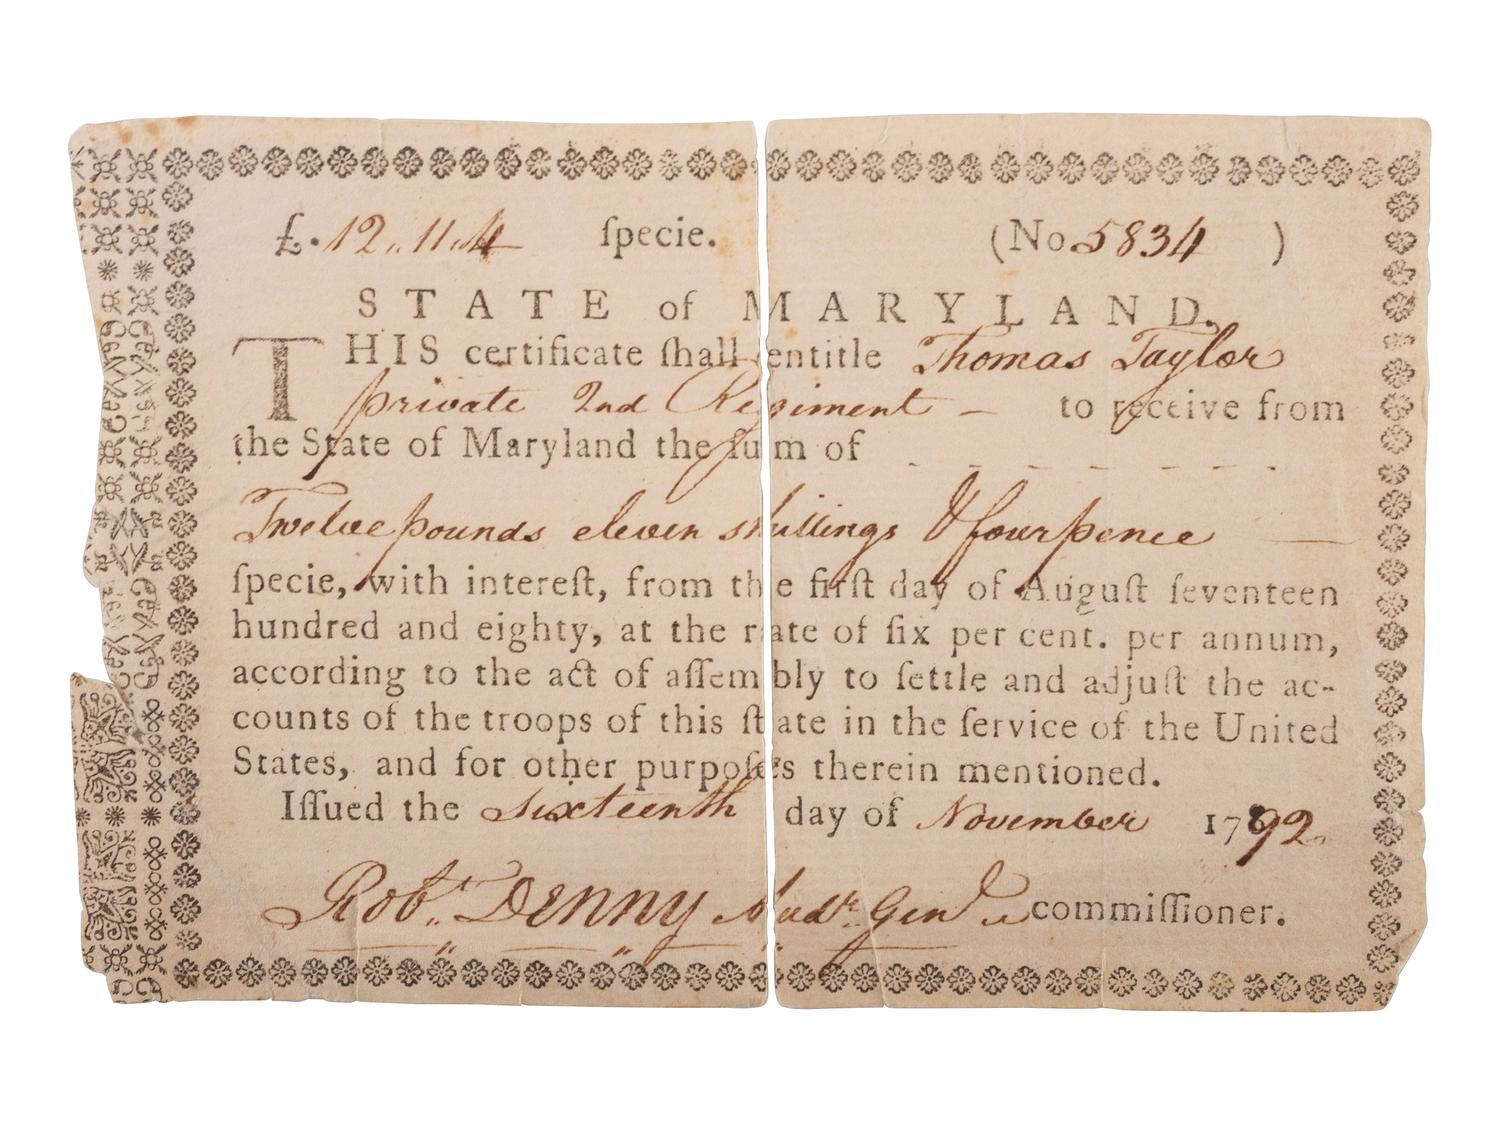 £. 12,, 11,, 4 ſpecie. (No. 5834 )
STATE of MARYLAND.
THIS certificate ſhall entitle Thomas Taylor
private 2nd Regiment - to receive from
the State of Maryland the ſum of - - - - - - -
Twelve pounds eleven shillings & four pence —
ſpecie, with intereſt, from the firſt day of Auguſt ſeventeen
hundred and eighty, at the rate of ſix per cent. per annum,
according to the act of aſſembly to ſettle and adjuſt the ac-
counts of the troops of this ſtate in the ſervice of the United
States, and for other purpoſes therein mentioned.
Iſſued the sixteenth day of November 1792.
Robt. Denny Audr. Genl. commiſſioner.